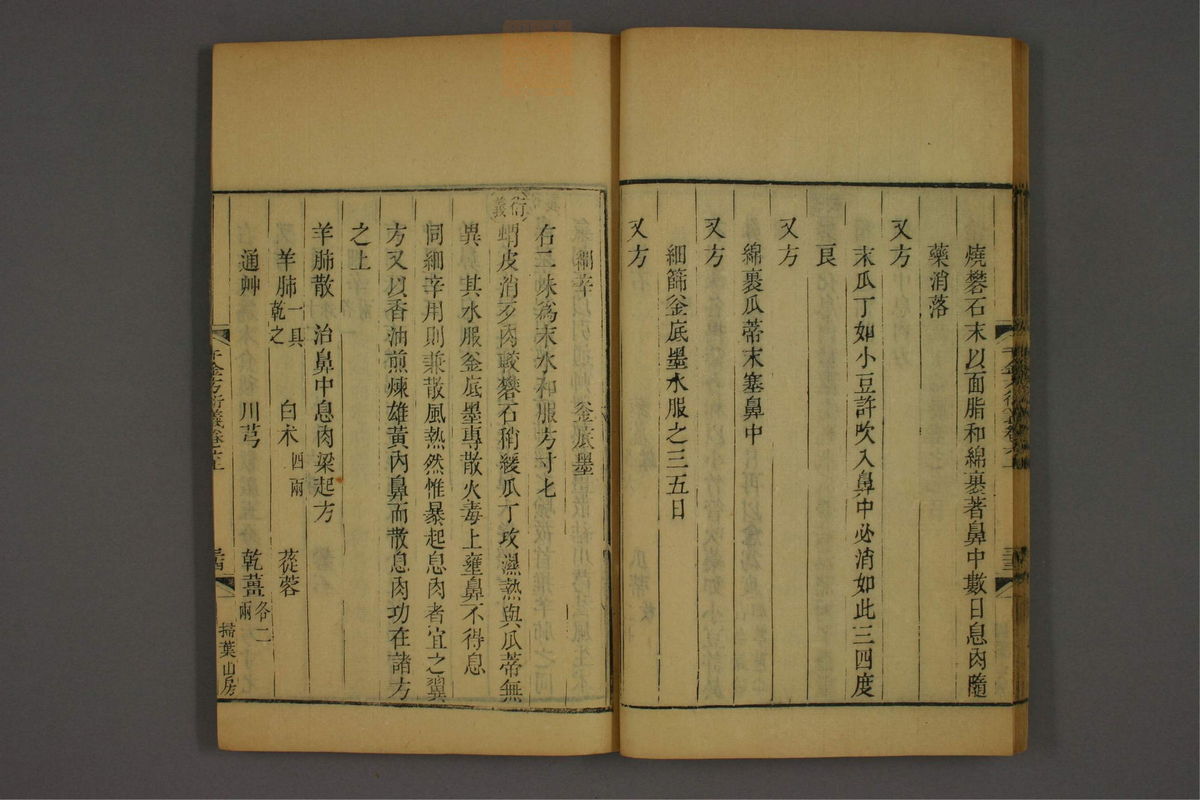 燒礬石末以面脂和綿裹著鼻中數日息肉隨
藥消落
又方
末瓜丁如小豆許吹入鼻中必消如此三四度
良
又方
綿裹瓜蒂末塞鼻中
又方
細篩釜底墨水服之三五日
又方
細辛 釜底墨
右二味為末水和服方寸匕
衍義
蝟皮消歹肉較礬石稍緩瓜丁攻濕熱與瓜蒂無
異 其水服釜底墨專散火毒上壅鼻不得息
同細辛用則兼散風熱然惟暴起息肉者宜之翼
方又以香油煎煉雄黃內鼻而散息肉功在諸方
之上
羊肺散 治鼻中息肉梁起方
羊肺一具乾之 白朮四兩 蓯蓉
通艸 川芎 乾薑各二兩
千金方衍義卷 掃葉山房